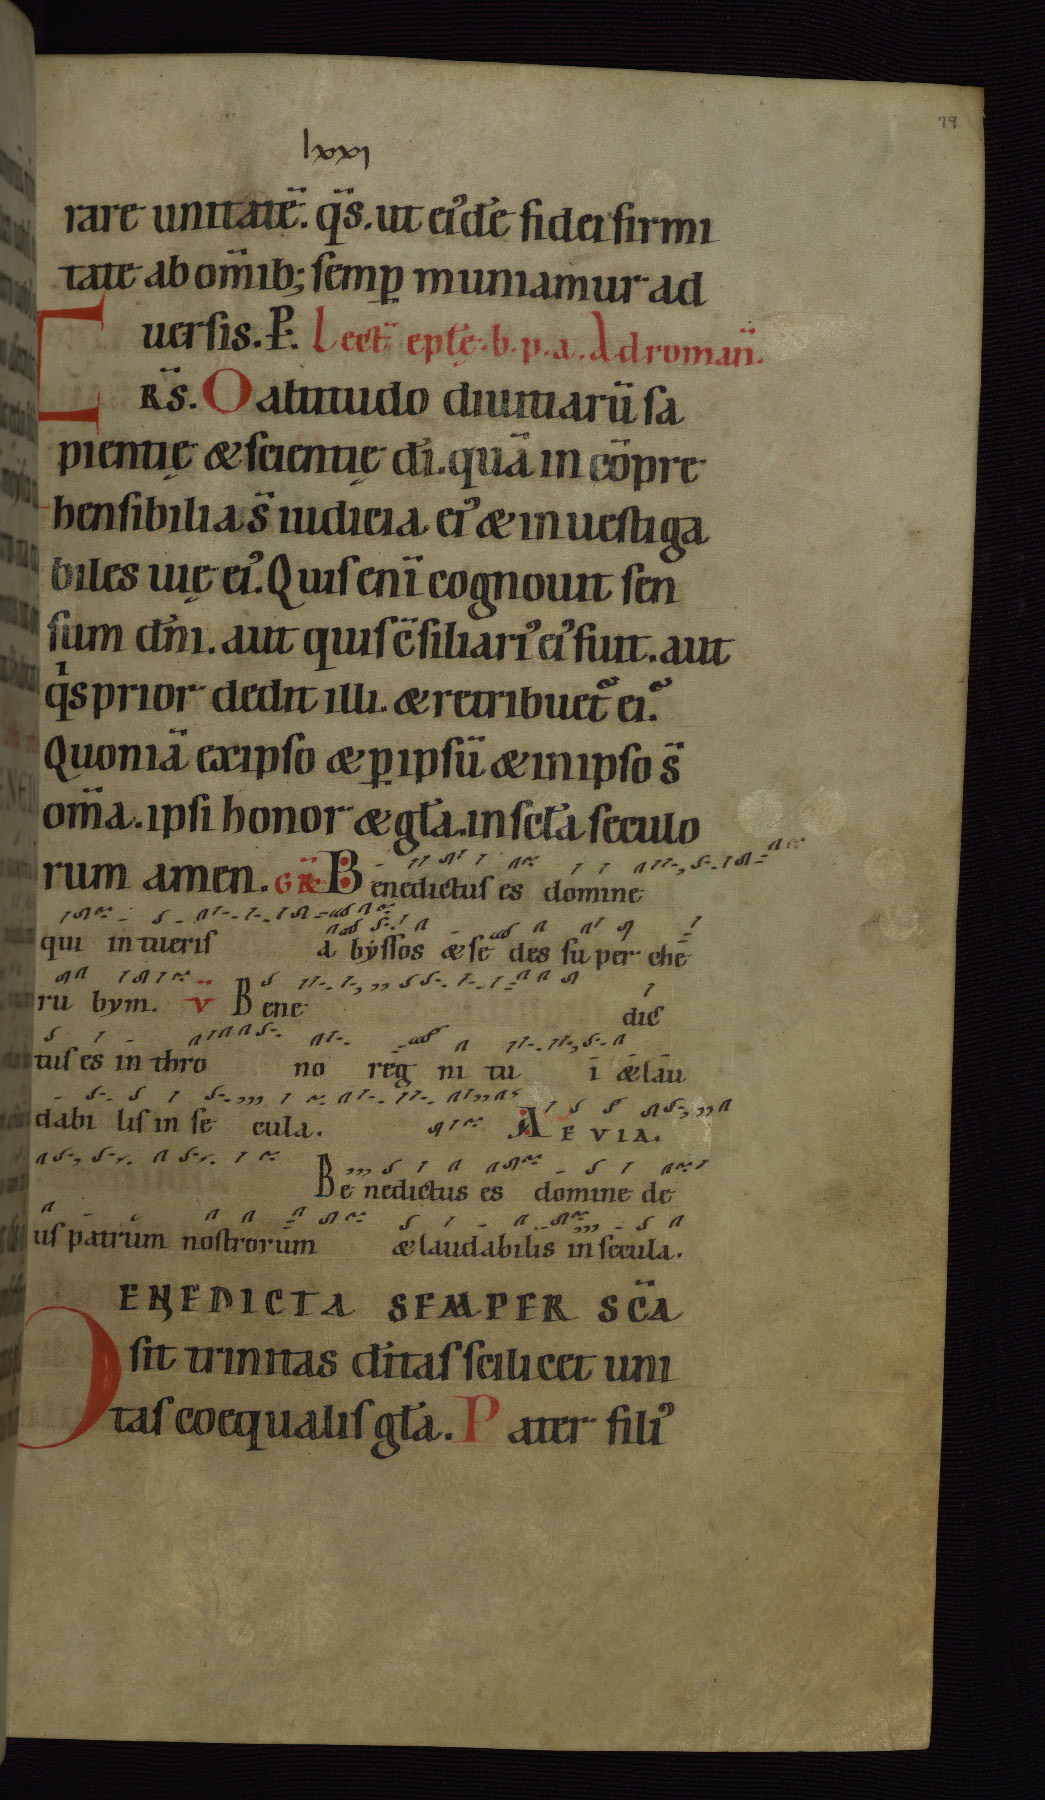 79
lxxi
rare unitatē. q̄s. ut ei᷒dē fidei firmi
tate ab om̄ib; semp̲ muniamur ad
uersis. P. Lect̄ epl̄ę. b. p. a. Ad roman̄.
R̄S. O altitudo diuitiarū sa
pientię & scientię dī. quā in cōpre
hensibilia s̄ iudicia ei᷒ & inuestiga
biles uię ei᷒. Quis enī cognouit sen
sum dn̄i. aut quis c̄siliari᷒ ei᷒ fuit. aut
qͥs prior dedit illi. & retribuet᷑ ei.᷒
Quoniā ex ipso & p̲ ipsū & in ipso s̄
om̄a. ipsi honor & gl̄a. in scl̄a seculo
rum amen. GR̄ Benedictus es domine
qui intueris abyssos & sedes super che
rubym. V̄ Bene dic
tus es in throno regni tui & lau
dabilis in secula. AEVIA.
Benedictus es domine de
us patrum nostrorum & laudabilis in secula.
BENEDICTA SEMPER SC̄A
sit trinitas dītas scilicet uni
tas coequalis gl̄a. Pater fili᷒